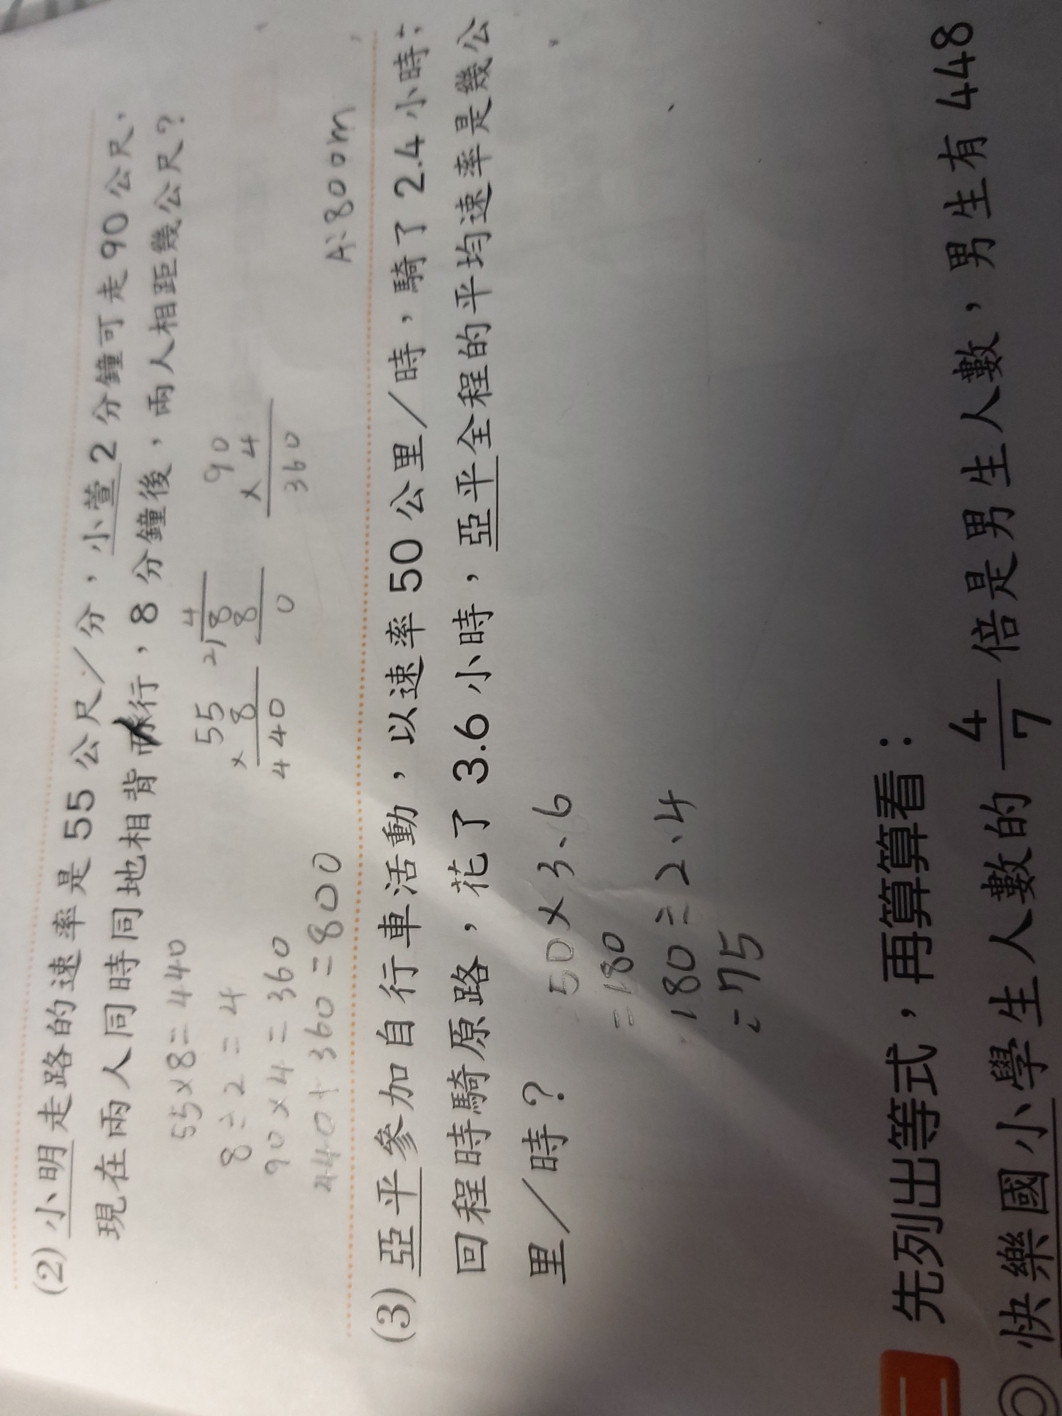 (2) 小明走路的速率是 55 公尺／分，小萱 2 分鐘可走 90 公尺，
現在兩人同時同地相背而行，8 分鐘後，兩人相距幾公尺？
55×8=440
8÷2=4
90×4=360
440+360=800
55
×8
440
4
2)8
8
0
90
×4
360
A:800m
(3) 亞平參加自行車活動，以速率 50 公里／時，騎了 2.4 小時；
回程時騎原路，花了 3.6 小時，亞平全程的平均速率是幾公
里／時？
50×3.6
=180
180÷2.4
=75
二
先列出等式，再算算看：
◎ 快樂國小學生人數的 4/7 倍是男生人數，男生有 448